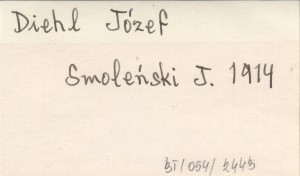 Diehl Józef
Smoleński J. 1914
BI/054/2445